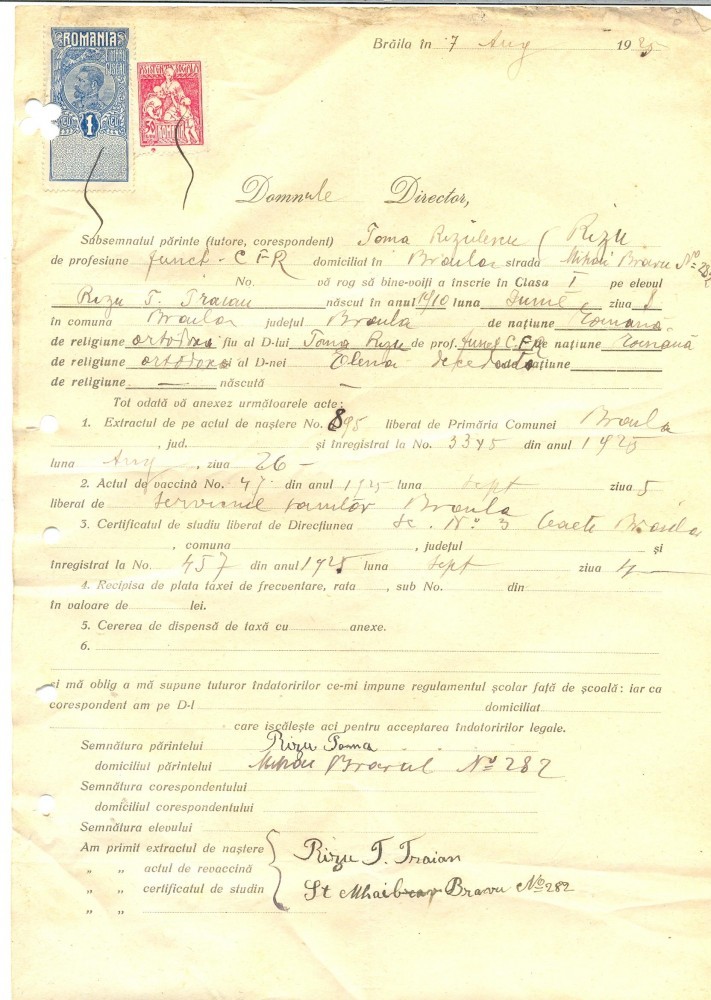 ROMANIA
1
50
ROMANIA
Brăila în 7 Aug 1925
Domnule Director,
Subsemnatul părinte (tutore, corespondent) Toma Rizulescu ( Rizu
de profesiune funct. C F R domiciliat în Braila strada Mihai Bravu No 282
No. vă rog să bine-voiți a înscrie în Clasa I pe elevul
Rizu T. Traian născut în anul 1910 luna Iunie ziua 8
în comuna Braila județul Braila de națiune Romană
de religiune ortodoxa fiu al D-lui Toma Rizu de prof. funct C.F.R de națiune Romană
de religiune ortodoxa și al D-nei Elena decedata națiune
de religiune — născută —
Tot odată vă anexez următoarele acte:
1. Extractul de pe actul de naștere No. 895 liberat de Primăria Comunei Braila
, jud. și înregistrat la No. 3345 din anul 1925
luna Aug , ziua 26 –
2. Actul de vaccină No. 47 din anul 1925 luna sept ziua 5
liberat de Serviciul sanitar Braila
3. Certificatul de studiu liberat de Direcțiunea Sc. No 3 Baeti Braila
, comuna , județul și
înregistrat la No. 457 din anul 1925 luna sept ziua 4 —
4. Recipisa de plata taxei de frecventare, rata , sub No. din
în valoare de lei.
5. Cererea de dispensă de taxă cu anexe.
6.
și mă oblig a mă supune tuturor îndatoririlor ce-mi impune regulamentul școlar față de școală: iar ca
corespondent am pe D-l domiciliat
care iscălește aci pentru acceptarea îndatoririlor legale.
Semnătura părintelui Rizu Toma
domiciliul părintelui Mihai Bravul No 282
Semnătura corespondentului
domiciliul corespondentului
Semnătura elevului
Am primit extractul de naștere Rizu T. Traian
„ „ actul de revaccină
„ „ certificatul de studiu St Mhai Bravu No 282
„ „